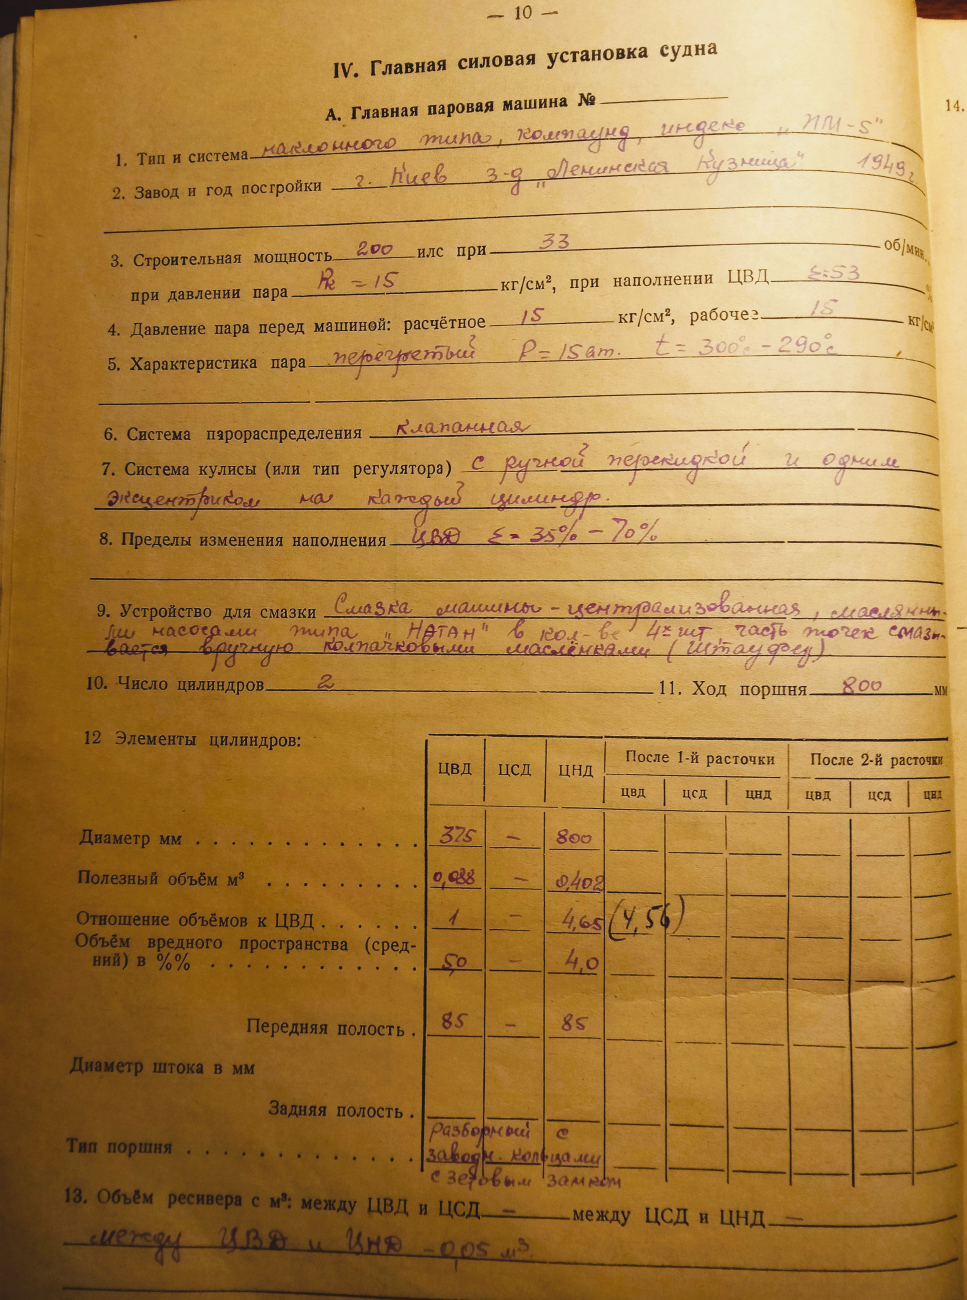 — 10 —
IV. Главная силовая установка судна
А. Главная паровая машина №
14.
1. Тип и система наклонного типа, компаунд, индекс „ПМ-5"
2. Завод и год постройки г. Киев з-д „Ленинская Кузница" 1949г.
3. Строительная мощность 200 илс при 33 об/мин.,
при давлении пара Pк = 15 кг/см², при наполнении ЦВД ε=53 %
4. Давление пара перед машиной: расчётное 15 кг/см², рабочее 15 кг/см²
5. Характеристика пара перегретый P = 15 ат. t = 300°с - 290°с
6. Система парораспределения клапанная
7. Система кулисы (или тип регулятора) с ручной перекидкой и одним
эксцентриком на каждый цилиндр.
8. Пределы изменения наполнения ЦВД ε = 35% - 70%
9. Устройство для смазки Смазка машины - централизованная, маслянны-
ми насосами типа „НАТАН" в кол-ве 4х шт, часть точек смазы-
вается вручную колпачковыми маслёнками (Штауфер)
10. Число цилиндров 2 11. Ход поршня 800 мм
12 Элементы цилиндров:
ЦВД ЦСД ЦНД После 1-й расточки После 2-й расточки
цвд цсд цнд цвд цсд цнд
Диаметр мм . . . . . . . . . . . . . 375 - 800
Полезный объём м³ . . . . . . . . . 0,088 - 0,402
Отношение объёмов к ЦВД . . . . . . 1 - 4,65 (4,56)
Объём вредного пространства (сред-
ний) в %% . . . . . . . . . . . . 5,0 - 4,0
Передняя полость . 85 - 85
Диаметр штока в мм
Задняя полость .
Тип поршня . . . . . . . . . . . . . разборный с
заводн. кольцами
с зетовым замком
13. Объём ресивера с м³: между ЦВД и ЦСД - между ЦСД и ЦНД -
между ЦВД и ЦНД - 0,05 м³